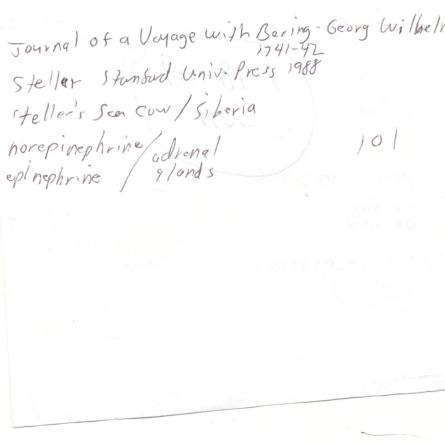 Journal of a Voyage with Bering - Georg Wilhelm
1741-42
Steller Stanford Univ. Press 1988
Steller's Sea Cow / Siberia
norepinephrine / adrenal
epinephrine / glands
101